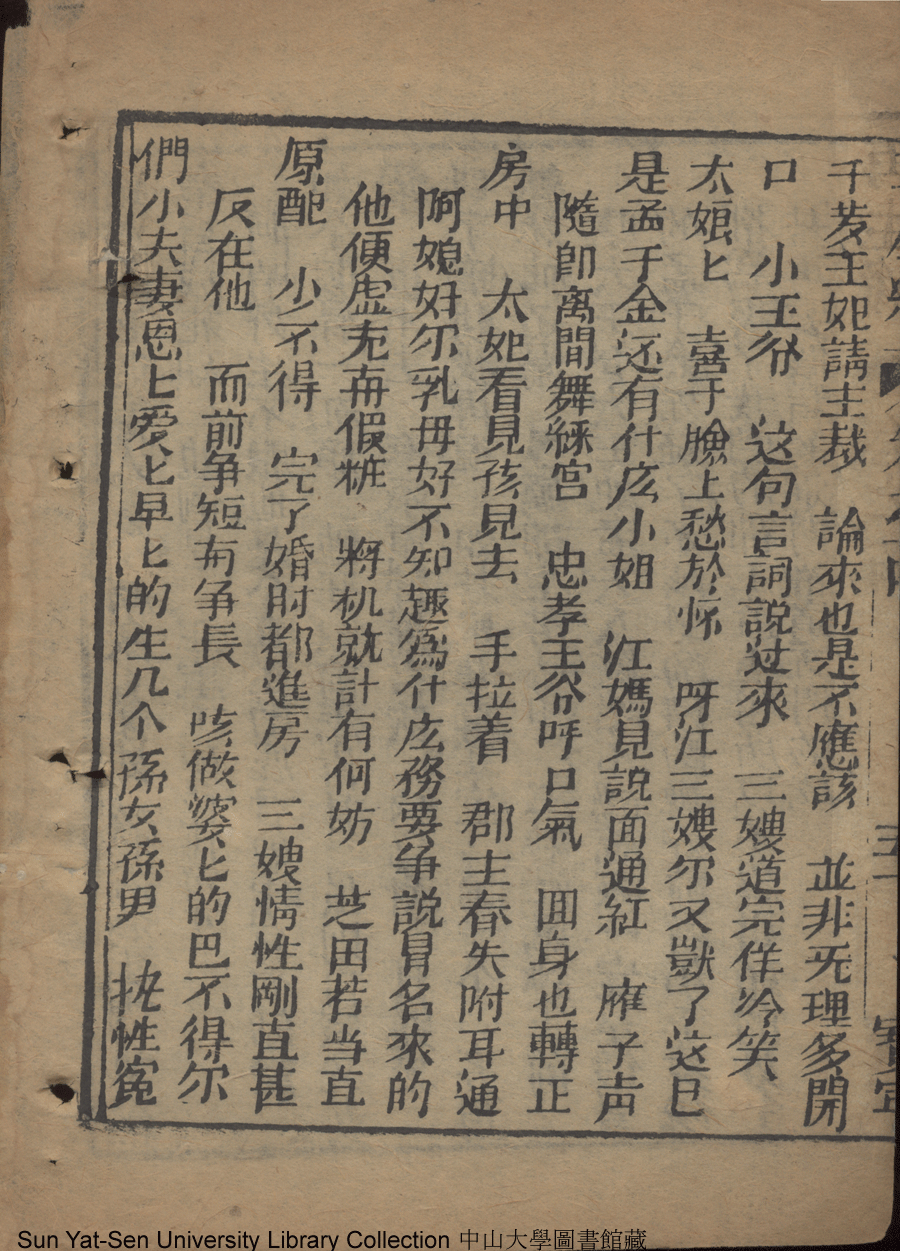 千岁主妃請主裁　論來也是不應該　並非无理多開
口　小王爷　这句言詞説过來　三嫂道完佯冷笑
太娘匕　喜于臉上愁於怀　呀江三嫂尔又獃了这已
是孟千金还有什庅小姐　江媽見説面通紅　應子声
隨即离間舞綵宮　忠孝王爷呼口氣　囬身也轉正
房中　太妃看見孩見去　手拉着　郡主春失附耳通
阿媳好尔乳母好不知趣為什庅務要爭説冒名來的
他便虚充再假粧　將机就計有何妨　芝田若当直
原配　少不得　完了婚時都進房　三嫂情性剛直甚
反在他　而前争短有争長　咳做婆匕的巴不得尔
們小夫妻恩匕爱匕早匕的生几个孫女孫男　執性寃
Sun Yat-Sen University Library Collection 中山大學圖書館藏